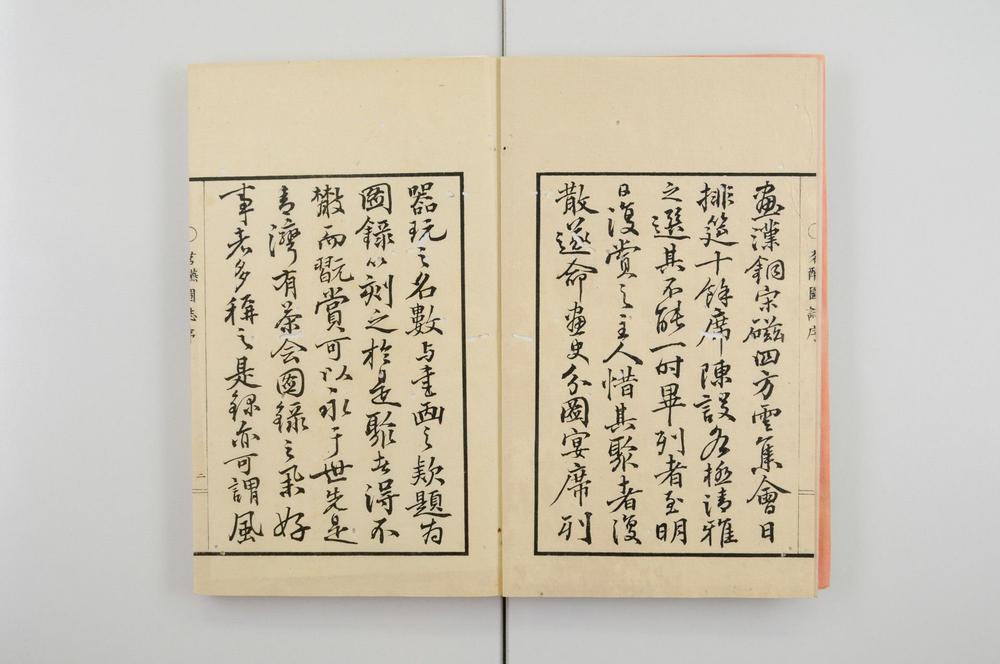 畫漢銅宋磁四方雲集會日
排筵十餘席陳設各極清雅
之選其不能一时畢列者至明
日復賞之主人惜其聚者復
散遂命畫史分圖宴席列
茗醼圖誌序
器玩之名數与書画之款題為
圖錄以刻之於是聚者得不
散而翫賞可以永于世先是
青灣有茶会圖錄之舉好
事者多稱之是録亦可謂風
茗醼圖誌序
二